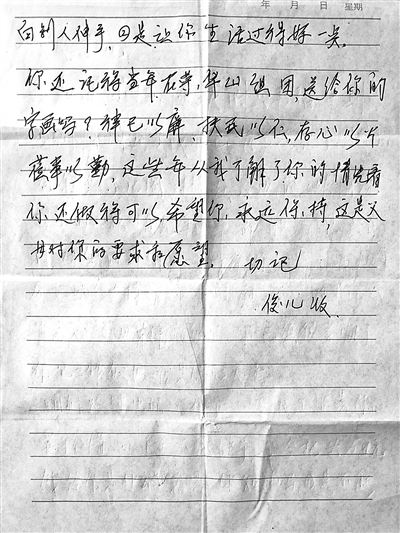 年 月 日 星期
向别人伸手,只是让你生活过得好一点。
你还记得当年在李华山组团,送给你的
字画吗?律已以廉,抚民以仁,存心以公
莅事以勤,这些年从我了解了你的情况看
你还做得可以,希望你永远保持,这是父
母对你的要求和愿望。 切记!
俊儿收